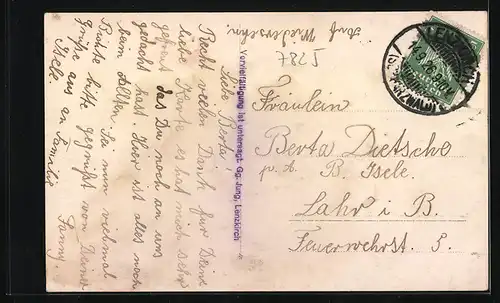 Auf Wiedersehn.
J 287
Liebe Berta!
Recht vielen Dank für Deine
liebe Karte es hat mich sehr
gefreut das Du noch an uns
gedacht hast. Hier ist alles noch
beim Alten. Sei nun vielmal
gegrüßt von Deiner
Fanny.
Richte bitte
Grüße aus an Familie
Isele.
Vervielfältigung ist untersagt. Gg. Jung, Lenzkirch
LENZKIRCH
(SCHWARZWALD)
Fräulein
Berta Dietsche
p. A. B. Isele.
Lahr i B.
Feuerwehrst. 5.